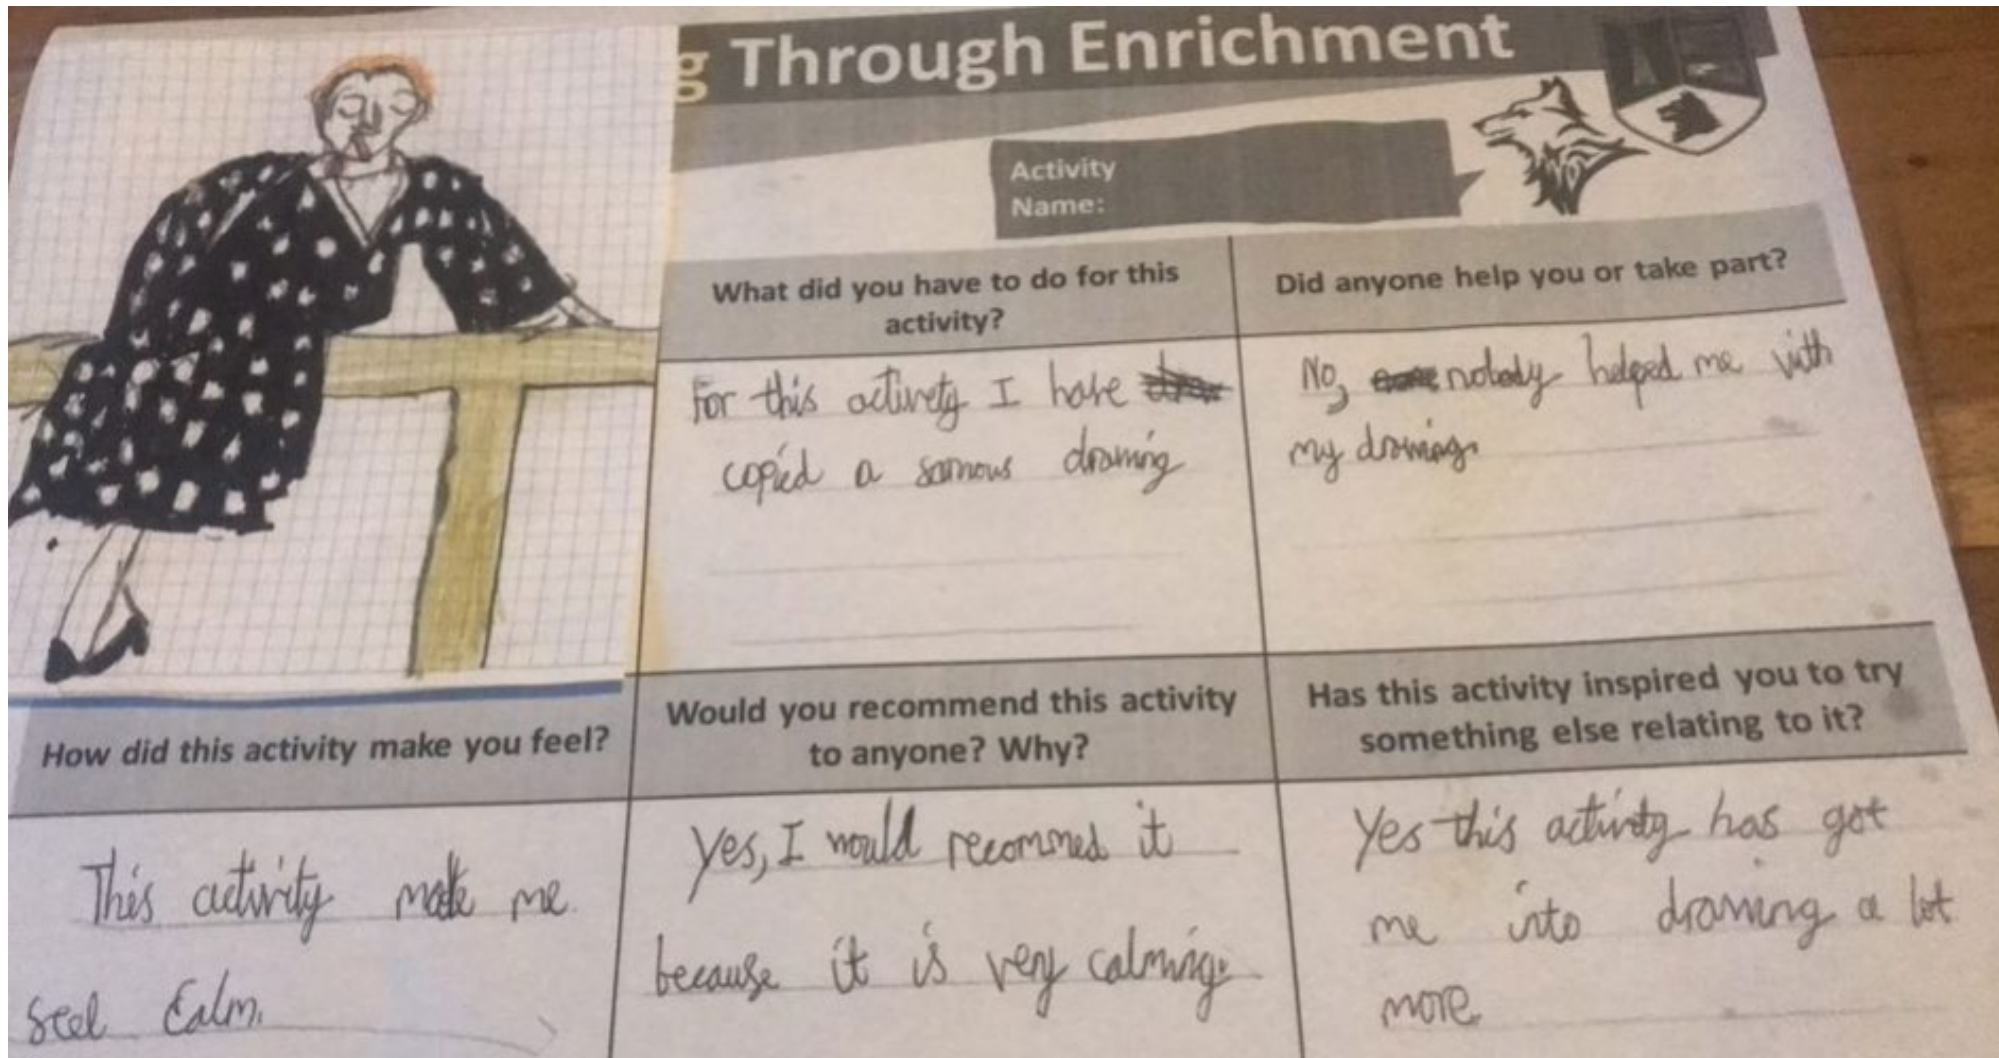 g Through Enrichment
Activity
Name:
What did you have to do for this
activity?
For this activety I have
copied a samous drawing
Did anyone help you or take part?
No, nobody helped me with
my drawing.
How did this activity make you feel?
This activity made me
seel Calm.
Would you recommend this activity
to anyone? Why?
Yes, I would recommed it
because it is very calming.
Has this activity inspired you to try
something else relating to it?
Yes this activity has got
me into drawing a lot
more